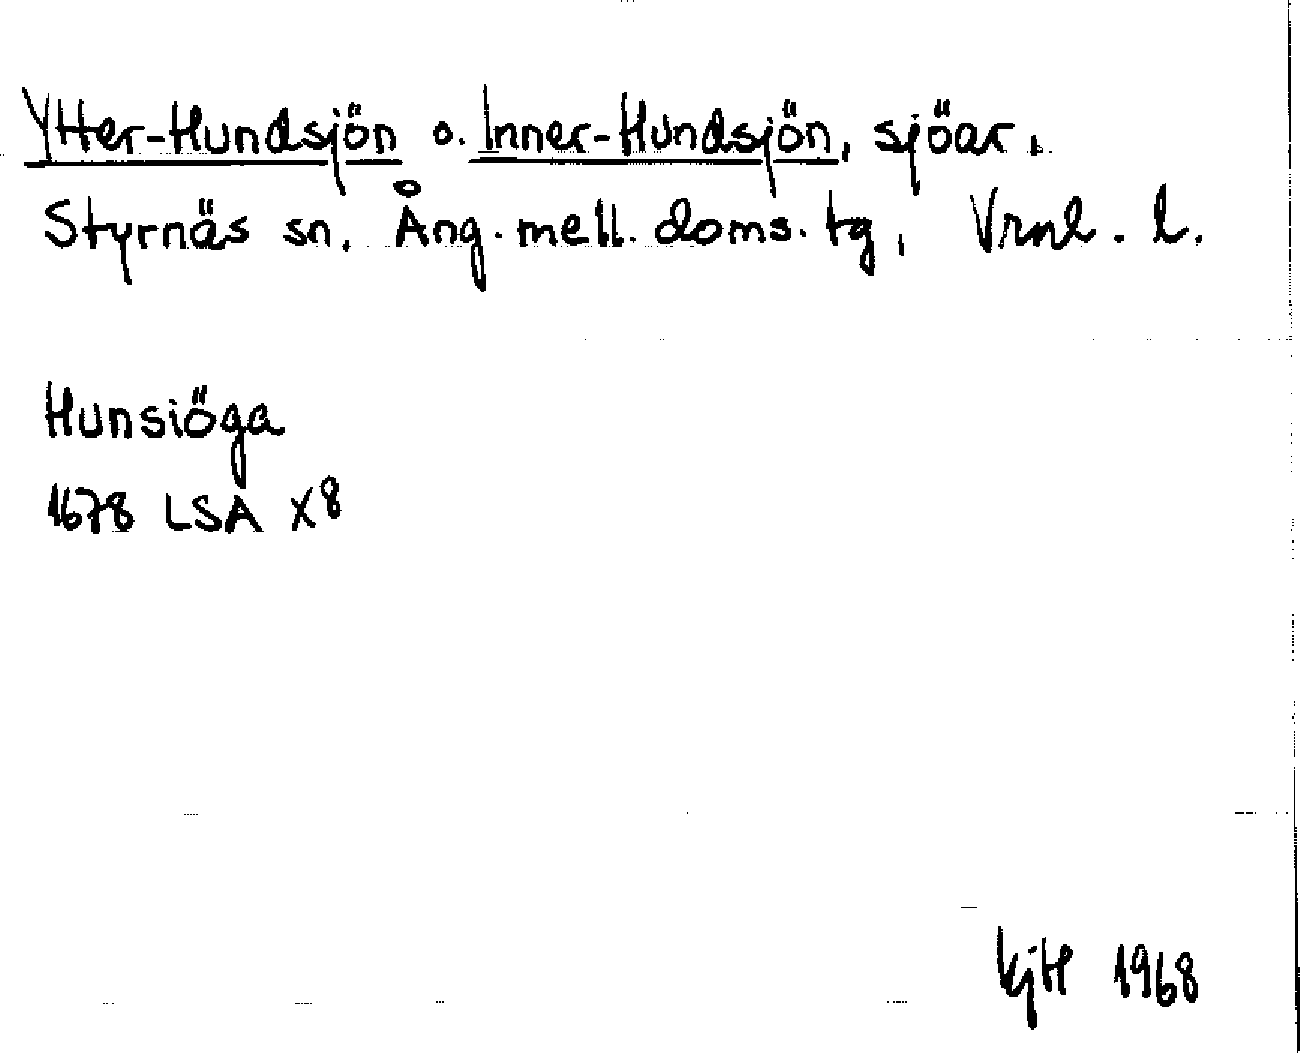 Ytter-Hundsjön o. Inner-Hundsjön, sjöar,
Styrnäs sn, Ång. mell. doms. tg, Vrnl. l.
Hunsiöga
1678 LSA X8
kjH 1968